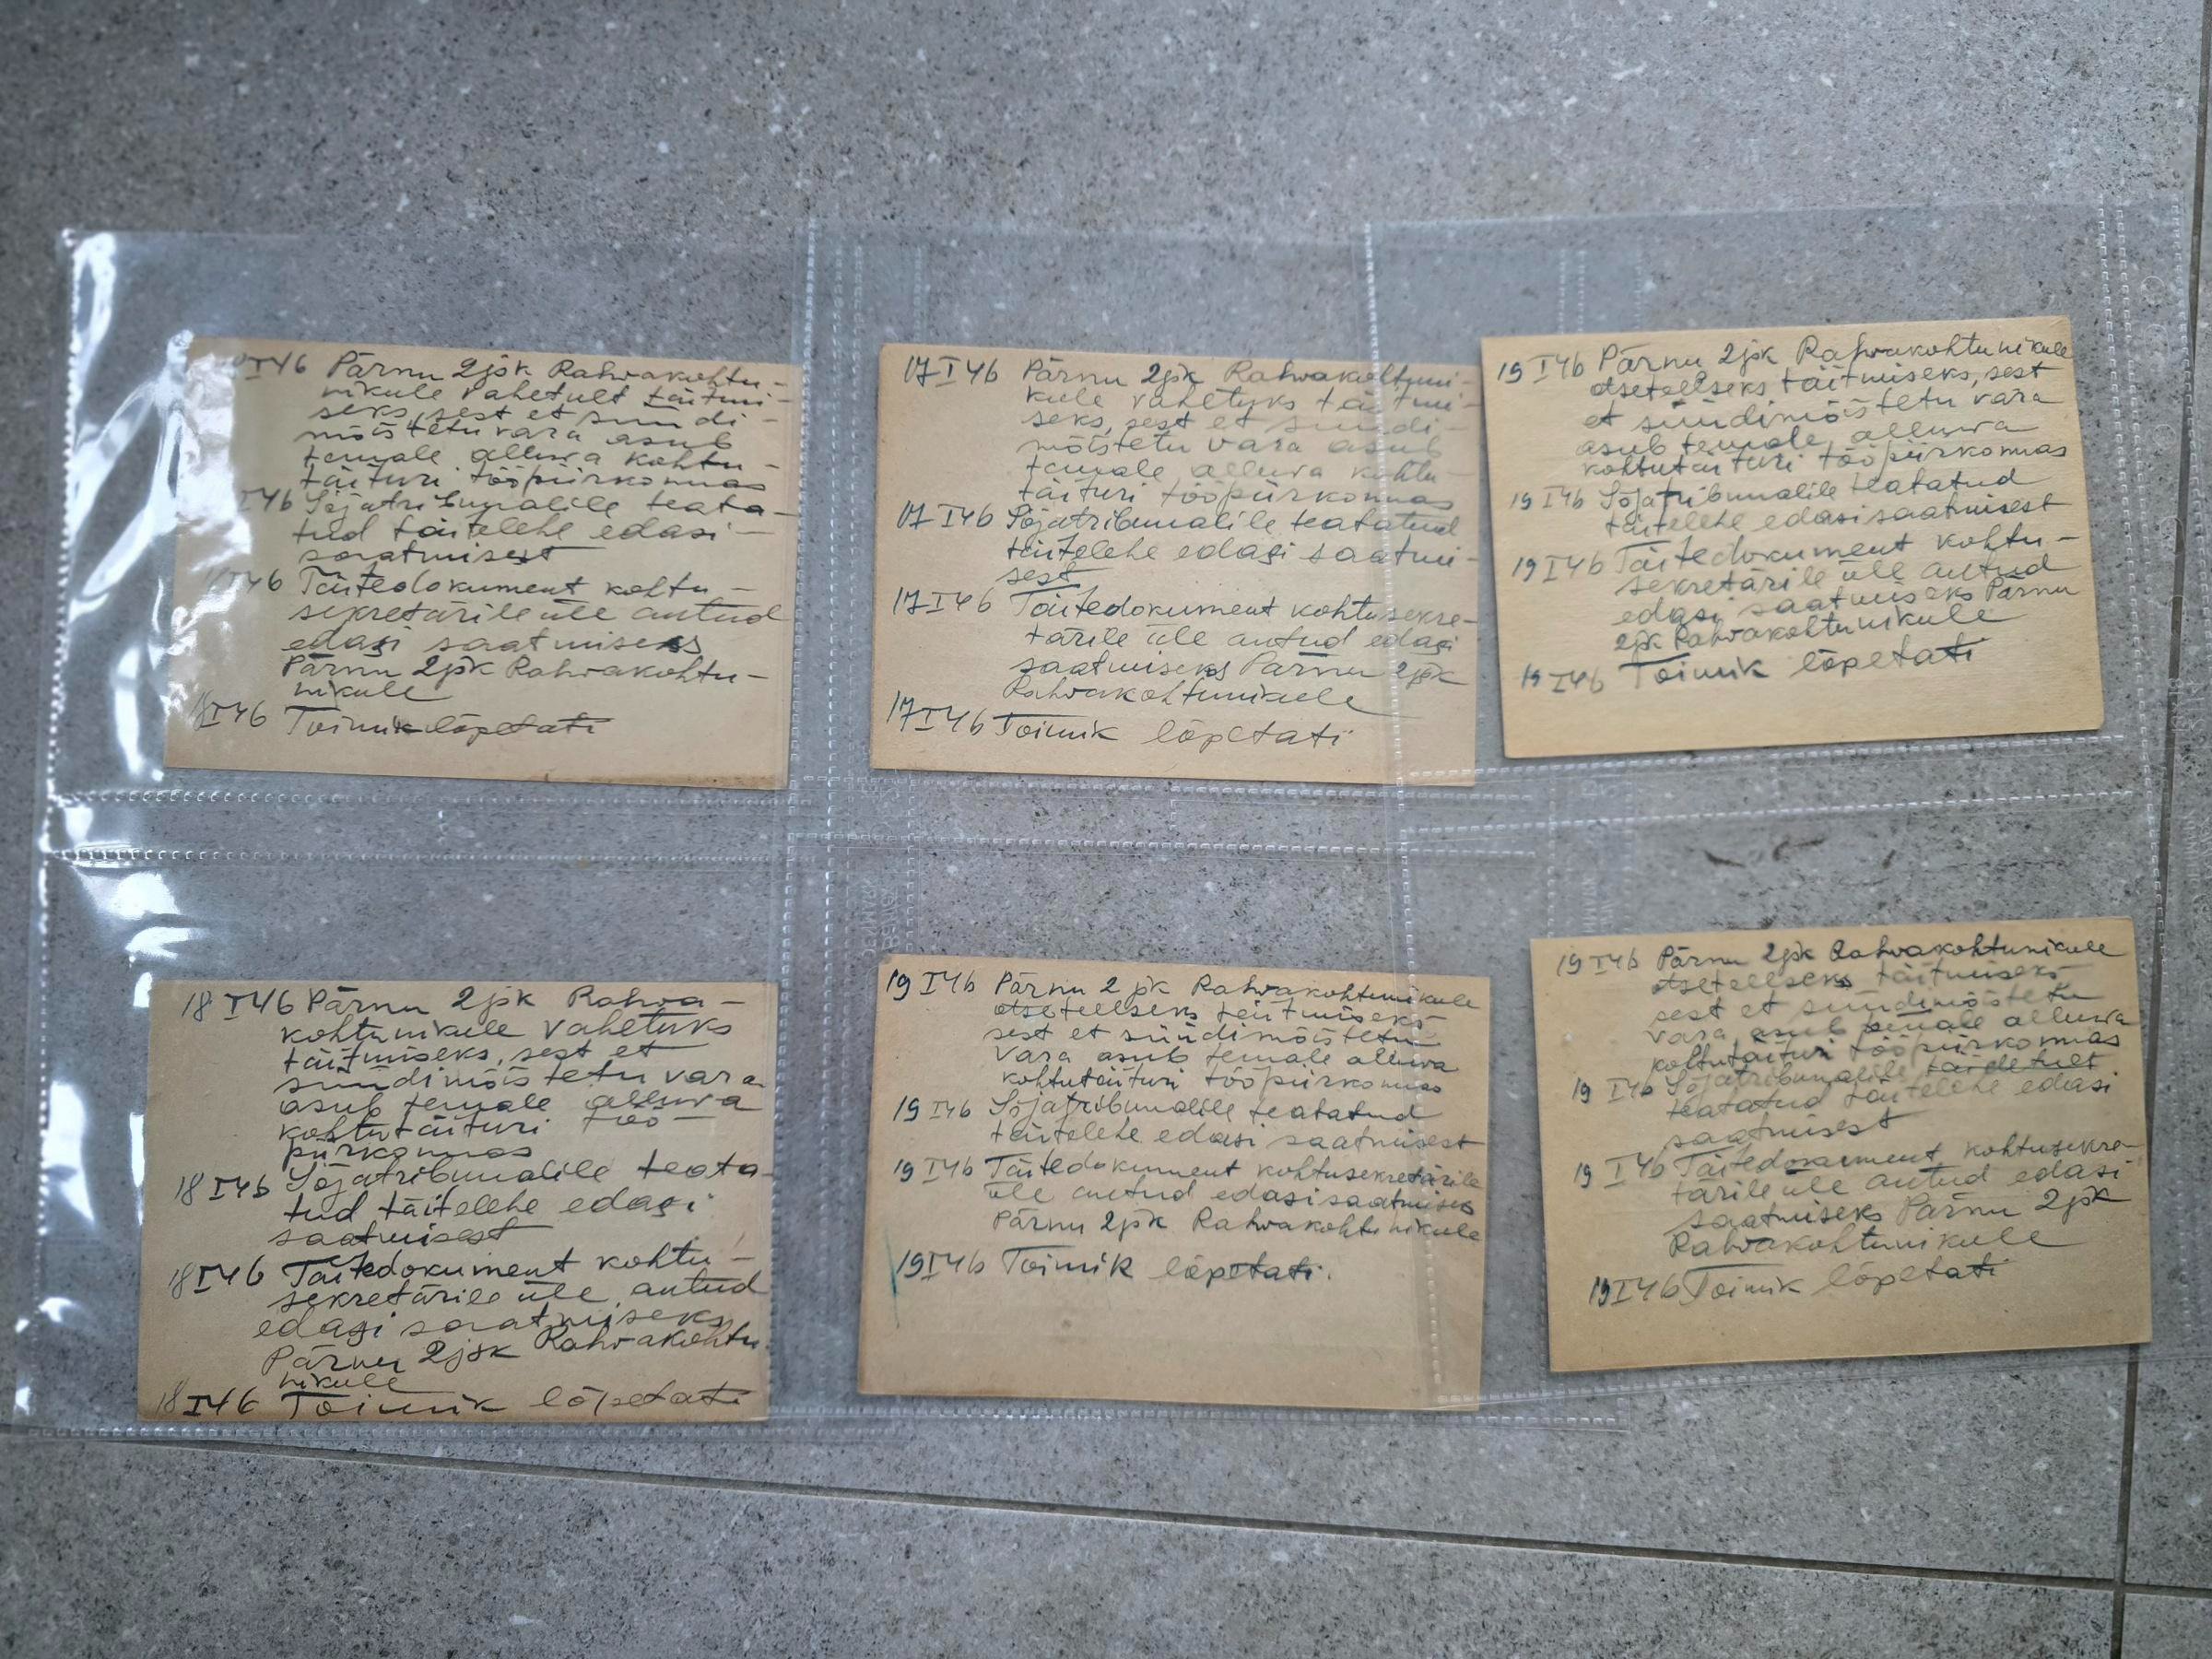 I 46 Pärnu 2jsk Rahvakohtu-
nikule vahetult täitmi-
seks, sest et süüdi-
mõistetu vara asub
temale alluva kohtu-
täituri tööpiirkonnas
I 46 Sõjatribunalile teata-
tud täitelehe edasi-
saatmisest
I 46 Täitedokument kohtu-
sekretärile üle antud
edasi saatmiseks
Pärnu 2jsk Rahvakohtu-
nikule
I 46 Toimik lõpetati
17 I 46 Pärnu 2jsk Rahvakohtuni-
kule vahetuks täitmi-
seks, sest et süüdi-
mõistetu vara asub
temale alluva kohtu-
täituri tööpiirkonnas
17 I 46 Sõjatribunalile teatatud
täitelehe edasi saatmi-
sest
17 I 46 Täitedokument kohtusekre-
tärile üle antud edasi
saatmiseks Pärnu 2jsk
Rahvakohtunikule
17 I 46 Toimik lõpetati
19 I 46 Pärnu 2jsk Rahvakohtunikule
otseteelseks täitmiseks, sest
et süüdimõistetu vara
asub temale alluva
kohtutäituri tööpiirkonnas
19 I 46 Sõjatribunalile teatatud
täitelehe edasisaatmisest
19 I 46 Täitedokument kohtu-
sekretärile üle antud
edasi saatmiseks Pärnu
2jsk Rahvakohtunikule
19 I 46 Toimik lõpetati
18 I 46 Pärnu 2jsk Rahva-
kohtunikule vahetuks
täitmiseks, sest et
süüdimõistetu vara
asub temale alluva
kohtutäituri töö-
piirkonnas
18 I 46 Sõjatribunalile teata-
tud täitelehe edasi
saatmisest
18 I 46 Täitedokument kohtu-
sekretärile üle antud
edasi saatmiseks
Pärnu 2jsk Rahvakohtu-
nikule
18 I 46 Toimik lõpetati
19 I 46 Pärnu 2jsk Rahvakohtunikule
otseteelseks täitmiseks
sest et süüdimõistetu
vara asub temale alluva
kohtutäituri tööpiirkonnas
19 I 46 Sõjatribunalile teatatud
täitelehe edasi saatmisest
19 I 46 Täitedokument kohtusekretärile
üle antud edasisaatmiseks
Pärnu 2jsk Rahvakohtunikule
19 I 46 Toimik lõpetati.
19 I 46 Pärnu 2jsk Rahvakohtunikule
otseteelseks täitmiseks
sest et süüdimõistetu
vara asub temale alluva
kohtutäituri tööpiirkonnas
19 I 46 Sõjatribunalile täidetult
teatatud täitelehe edasi
saatmisest
19 I 46 Täitedokument kohtusekre-
tärile üle antud edasi
saatmiseks Pärnu 2jsk
Rahvakohtunikule
19 I 46 Toimik lõpetati